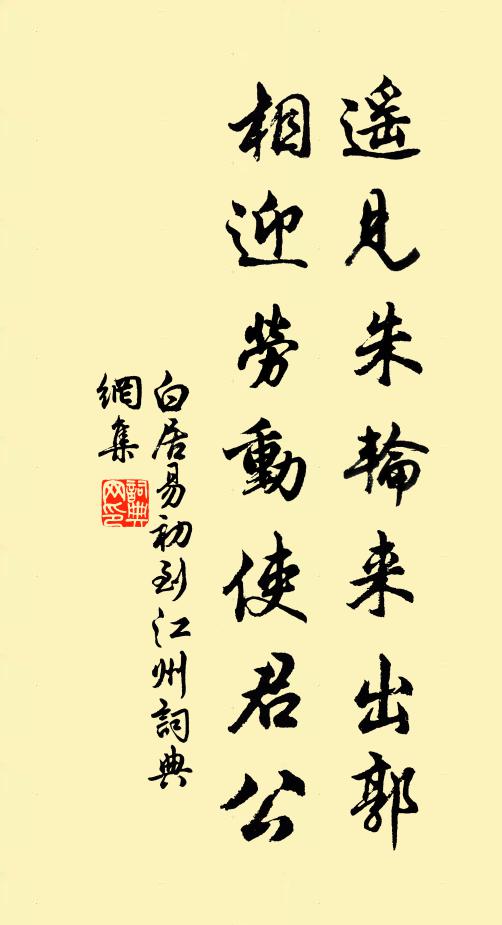 遥見朱輪来出郭
相迎勞動使君公
白居易初到江州詞典
網集
詞典网印